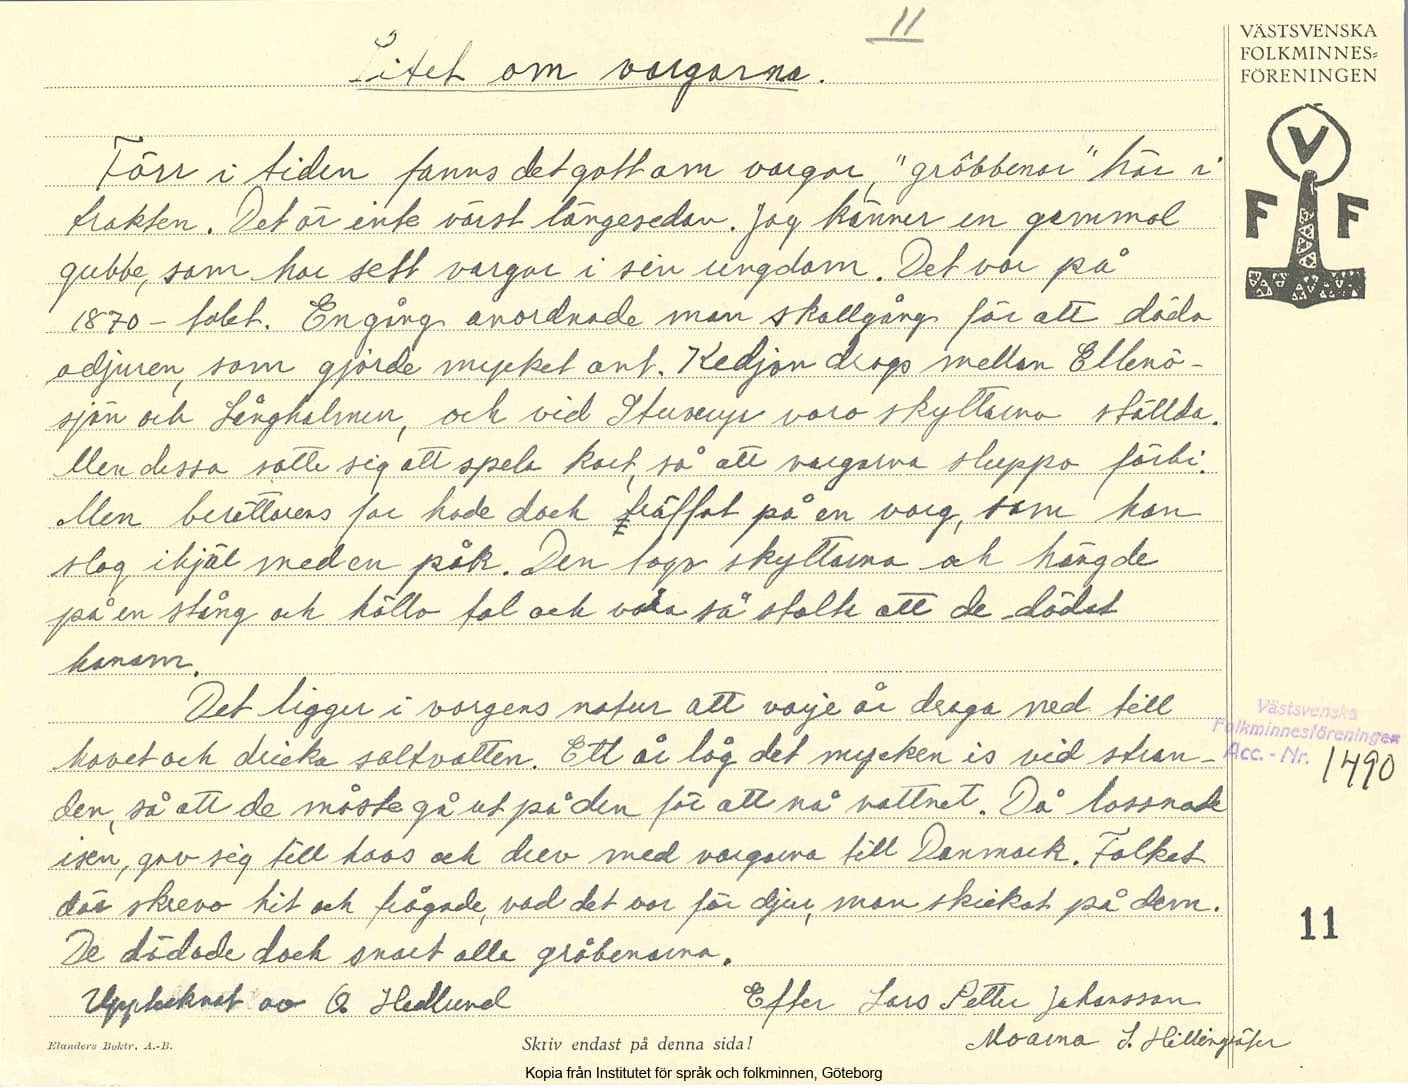 11
Litet om vargarna.
VÄSTSVENSKA
FOLKMINNES=
FÖRENINGEN
V
F F
Förr i tiden fanns det gott om vargar, "gråbbenar" här i
trakten. Det är inte värst längesedan. Jag känner en gammal
gubbe, som har sett vargar i sin ungdom. Det var på
1870-talet. En gång anordnade man skallgång för att döda
odjuren, som gjorde mycket ont. Kedjan drogs mellan Ellenö-
sjön och Långhalmen, och vid voro skyttarna ställda.
Men dessa satte sig att spela kort, så att vargarna sluppo förbi.
Men berättarens far hade dock träffat på en varg, som han
slog ihjäl med en påk. Den togo skyttarna och hängde
på en stång och höllo tal och voro så stolta att de dödat
honom.
Det ligger i vargens natur att varje år draga ned till
havet och dricka saltvatten. Ett år låg det mycken is vid stran-
den, så att de måste gå ut på den för att nå vattnet. Då lossnade
isen, gav sig till havs och drev med vargarna till Danmark. Folket
där skrevo hit och frågade, vad det var för djur, man skickat på dem.
De dödade dock snart alla gråbenarna.
Västsvenska
Folkminnesföreningen
Acc. - Nr. 1490
11
Upptecknat av O Hedlund
Efter Lars Petter Johansson
Moarna S.
Elanders Boktr. A.-B.
Skriv endast på denna sida!
Kopia från Institutet för språk och folkminnen, Göteborg